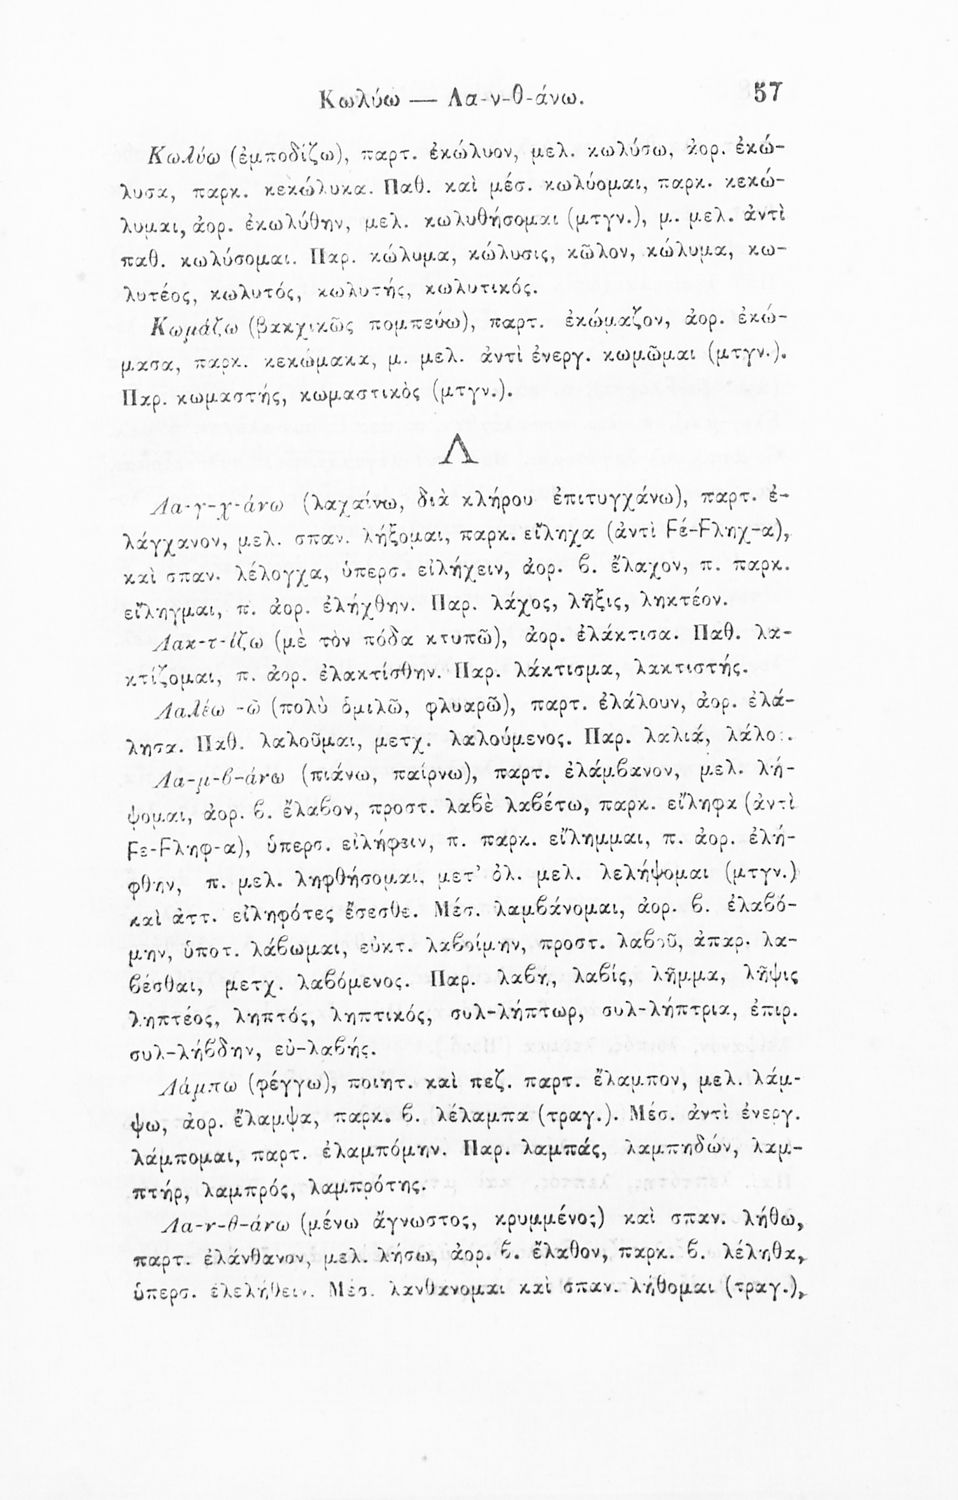 Κωλύω — Λα-ν-θ-άνω. 57
Κωλύω (ἐμποδίζω), παρτ. ἐκώλυον, μελ. κωλύσω, ἀορ. ἐκώ-
λυσα, παρκ. κεκώλυκα. Παθ. καὶ μέσ. κωλύομαι, παρκ. κεκώ-
λυμαι, ἀορ. ἐκωλύθην, μελ. κωλυθήσομαι (μτγν.), μ. μελ. ἀντὶ
παθ. κωλύσομαι. Παρ. κώλυμα, κώλυσις, κῶλον, κώλυμα, κω-
λυτέος, κωλυτός, κωλυτής, κωλυτικός.
Κωμάζω (βακχικῶς πομπεύω), παρτ. ἐκώμαζον, ἀορ. ἐκώ-
μασα, παρκ. κεκώμακα, μ. μελ. ἀντὶ ἐνεργ. κωμῶμαι (μτγν.).
Παρ. κωμαστής, κωμαστικὸς (μτγν.).
Λ
Λα-γ-χ-άνω (λαχαίνω, διὰ κλήρου ἐπιτυγχάνω), παρτ. ἐ-
λάγχανον, μελ. σπαν. λήξομαι, παρκ. εἴληχα (ἀντὶ Ϝέ-Ϝληχ-α),
καὶ σπαν. λέλογχα, ὑπερσ. εἰλήχειν, ἀορ. ϐ. ἔλαχον, π. παρκ.
εἴληγμαι, π. ἀορ. ἐλήχθην. Παρ. λάχος, λῆξις, ληκτέον.
Λακ-τ-ίζω (μὲ τὸν πόδα κτυπῶ), ἀορ. ἐλάκτισα. Παθ. λα-
κτίζομαι, π. ἀορ. ἐλακτίσθην. Παρ. λάκτισμα, λακτιστής.
Λαλέω -ῶ (πολὺ ὁμιλῶ, φλυαρῶ), παρτ. ἐλάλουν, ἀορ. ἐλά-
λησα. Παθ. λαλοῦμαι, μετχ. λαλούμενος. Παρ. λαλιά, λάλος.
Λα-μ-ϐ-άνω (πιάνω, παίρνω), παρτ. ἐλάμϐανον, μελ. λή-
ψομαι, ἀορ. ϐ. ἔλαϐον, προστ. λαϐὲ λαϐέτω, παρκ. εἴληφα (ἀντὶ
Ϝε-Ϝληφ-α), ὑπερσ. εἰλήφειν, π. παρκ. εἴλημμαι, π. ἀορ. ἐλή-
φθην, π. μελ. ληφθήσομαι, μετ’ ὀλ. μελ. λελήψομαι (μτγν.)
καὶ ἀττ. εἰληφότες ἔσεσθε. Μέσ. λαμϐάνομαι, ἀορ. ϐ. ἐλαϐό-
μην, ὑποτ. λάϐωμαι, εὐκτ. λαϐοίμην, προστ. λαϐοῦ, ἀπαρ. λα-
ϐέσθαι, μετχ. λαϐόμενος. Παρ. λαϐή, λαϐίς, λῆμμα, λῆψις
ληπτέος, ληπτός, ληπτικός, συλ-λήπτωρ, συλ-λήπτρια, ἐπιρ.
συλ-λήϐδην, εὐ-λαϐής.
Λάμπω (φέγγω), ποιητ. καὶ πεζ. παρτ. ἔλαμπον, μελ. λάμ-
ψω, ἀορ. ἔλαμψα, παρκ. ϐ. λέλαμπα (τραγ.). Μέσ. ἀντὶ ἐνεργ.
λάμπομαι, παρτ. ἐλαμπόμην. Παρ. λαμπάς, λαμπηδών, λαμ-
πτήρ, λαμπρός, λαμπρότης.
Λα-ν-θ-άνω (μένω ἄγνωστος, κρυμμένος) καὶ σπαν. λήθω,
παρτ. ἐλάνθανον, μελ. λήσω, ἀορ. ϐ. ἔλαθον, παρκ. ϐ. λέληθα,
ὑπερσ. ἐλελήθειν. Μέσ. λανθανομαι καὶ σπαν. λήθομαι (τραγ.),